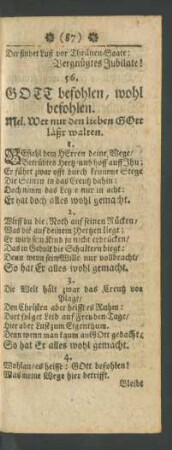 (87)
Der findet Lust vor Thränen-Saate:
Vergnügtes Jubilate!
56.
GOTT befohlen, wohl
befohlen.
Mel. Wer nur den lieben GOtt
läßt walten.
1.
BEfiehl dem HErren deine Wege/
Betrübtes Hertz und hoff auff Ihn;
Er führt zwar offt durch krumme Stege
Die Seinen in das Creutz dahin:
Doch nimm das Creutz nur in acht:
Er hat doch alles wohl gemacht.
2.
Wirff du die Noth auf seinen Rücken/
Was dir auf deinem Hertzen liegt;
Er wird sein Kind ja nicht erdrücken/
Das in Gedult die Schultern biegt:
Denn wenn sein Wille nur vollbracht/
So hat Er alles wohl gemacht.
3.
Die Welt hält zwar das Creutz vor
Plage/
Den Christen aber heist es Rahm:
Dort folget Leid auf Freuden-Tage/
Hier aber Lust zum Eigenthum.
Denn wenn man kaum an GOtt gedacht,
So hat Er alles wohl gemacht.
4.
Wohlan/es heißt: GOtt befohlen!
Was meine Wege hier betrifft.
Bleibt